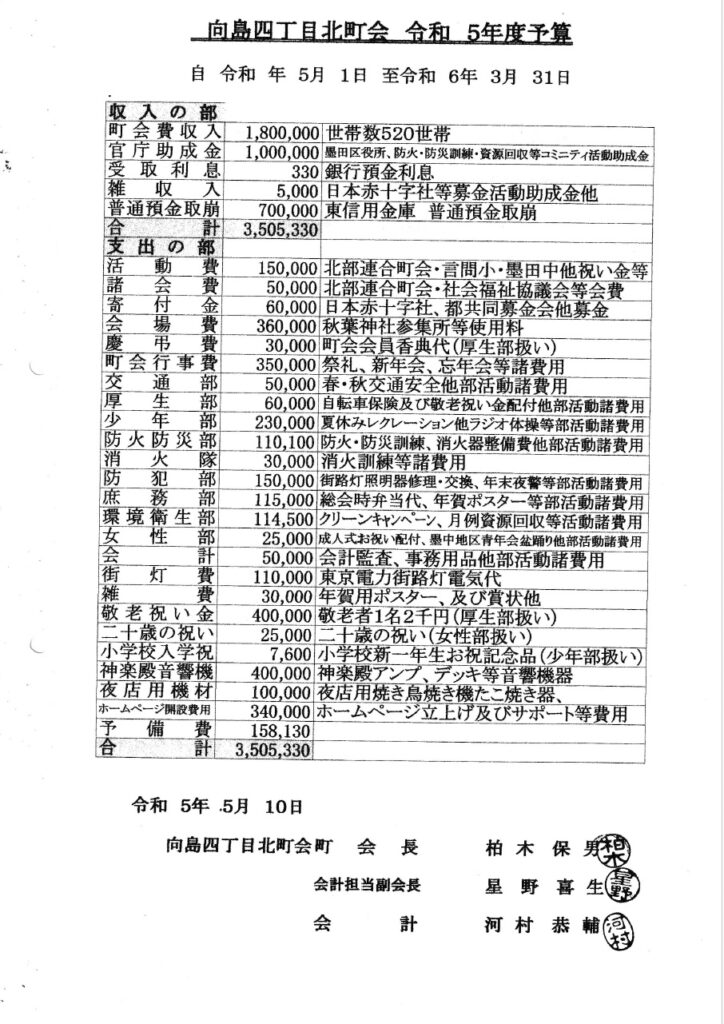 向島四丁目北町会 令和 5年度予算
自 令和 年 5月 1日 至令和 6年 3月 31日
収入の部
町会費収入 1,800,000 世帯数520世帯
官庁助成金 1,000,000 墨田区役所、防火・防災訓練・資源回収等コミニティ活動助成金
受取利息 330 銀行預金利息
雑収入 5,000 日本赤十字社等募金活動助成金他
普通預金取崩 700,000 東信用金庫 普通預金取崩
合計 3,505,330
支出の部
活動費 150,000 北部連合町会・言問小・墨田中他祝い金等
諸会費 50,000 北部連合町会・社会福祉協議会等会費
寄付金 60,000 日本赤十字社、都共同募金会他募金
会場費 360,000 秋葉神社参集所等使用料
慶弔費 30,000 町会会員香典代(厚生部扱い)
町会行事費 350,000 祭礼、新年会、忘年会等諸費用
交通部 50,000 春・秋交通安全他部活動諸費用
厚生部 60,000 自転車保険及び敬老祝い金配付他部活動諸費用
少年部 230,000 夏休みレクレーション他ラジオ体操等部活動諸費用
防火防災部 110,100 防火・防災訓練、消火器整備費他部活動諸費用
消火隊 30,000 消火訓練等諸費用
防犯部 150,000 街路灯照明器修理・交換、年末夜警等部活動諸費用
庶務部 115,000 総会時弁当代、年賀ポスター等部活動諸費用
環境衛生部 114,500 クリーンキャンペーン、月例資源回収等活動諸費用
女性部 25,000 成人式お祝い配付、墨中地区青年会盆踊り他部活動諸費用
会計 50,000 会計監査、事務用品他部活動諸費用
街灯費 110,000 東京電力街路灯電気代
雑費 30,000 年賀用ポスター、及び賞状他
敬老祝い金 400,000 敬老者1名2千円(厚生部扱い)
二十歳の祝い 25,000 二十歳の祝い(女性部扱い)
小学校入学祝 7,600 小学校新一年生お祝記念品(少年部扱い)
神楽殿音響機 400,000 神楽殿アンプ、デッキ等音響機器
夜店用機材 100,000 夜店用焼き鳥焼き機たこ焼き器、
ホームページ開設費用 340,000 ホームページ立上げ及びサポート等費用
予備費 158,130
合計 3,505,330
令和 5年 5月 10日
向島四丁目北町会町 会 長 柏木保男 柏木
会計担当副会長 星野喜生 星野
会計 河村恭輔 河村